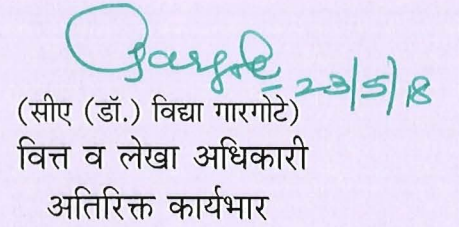 Gargote 23/5/18
(सीए (डॉ.) विद्या गारगोटे)
वित्त व लेखा अधिकारी
अतिरिक्त कार्यभार